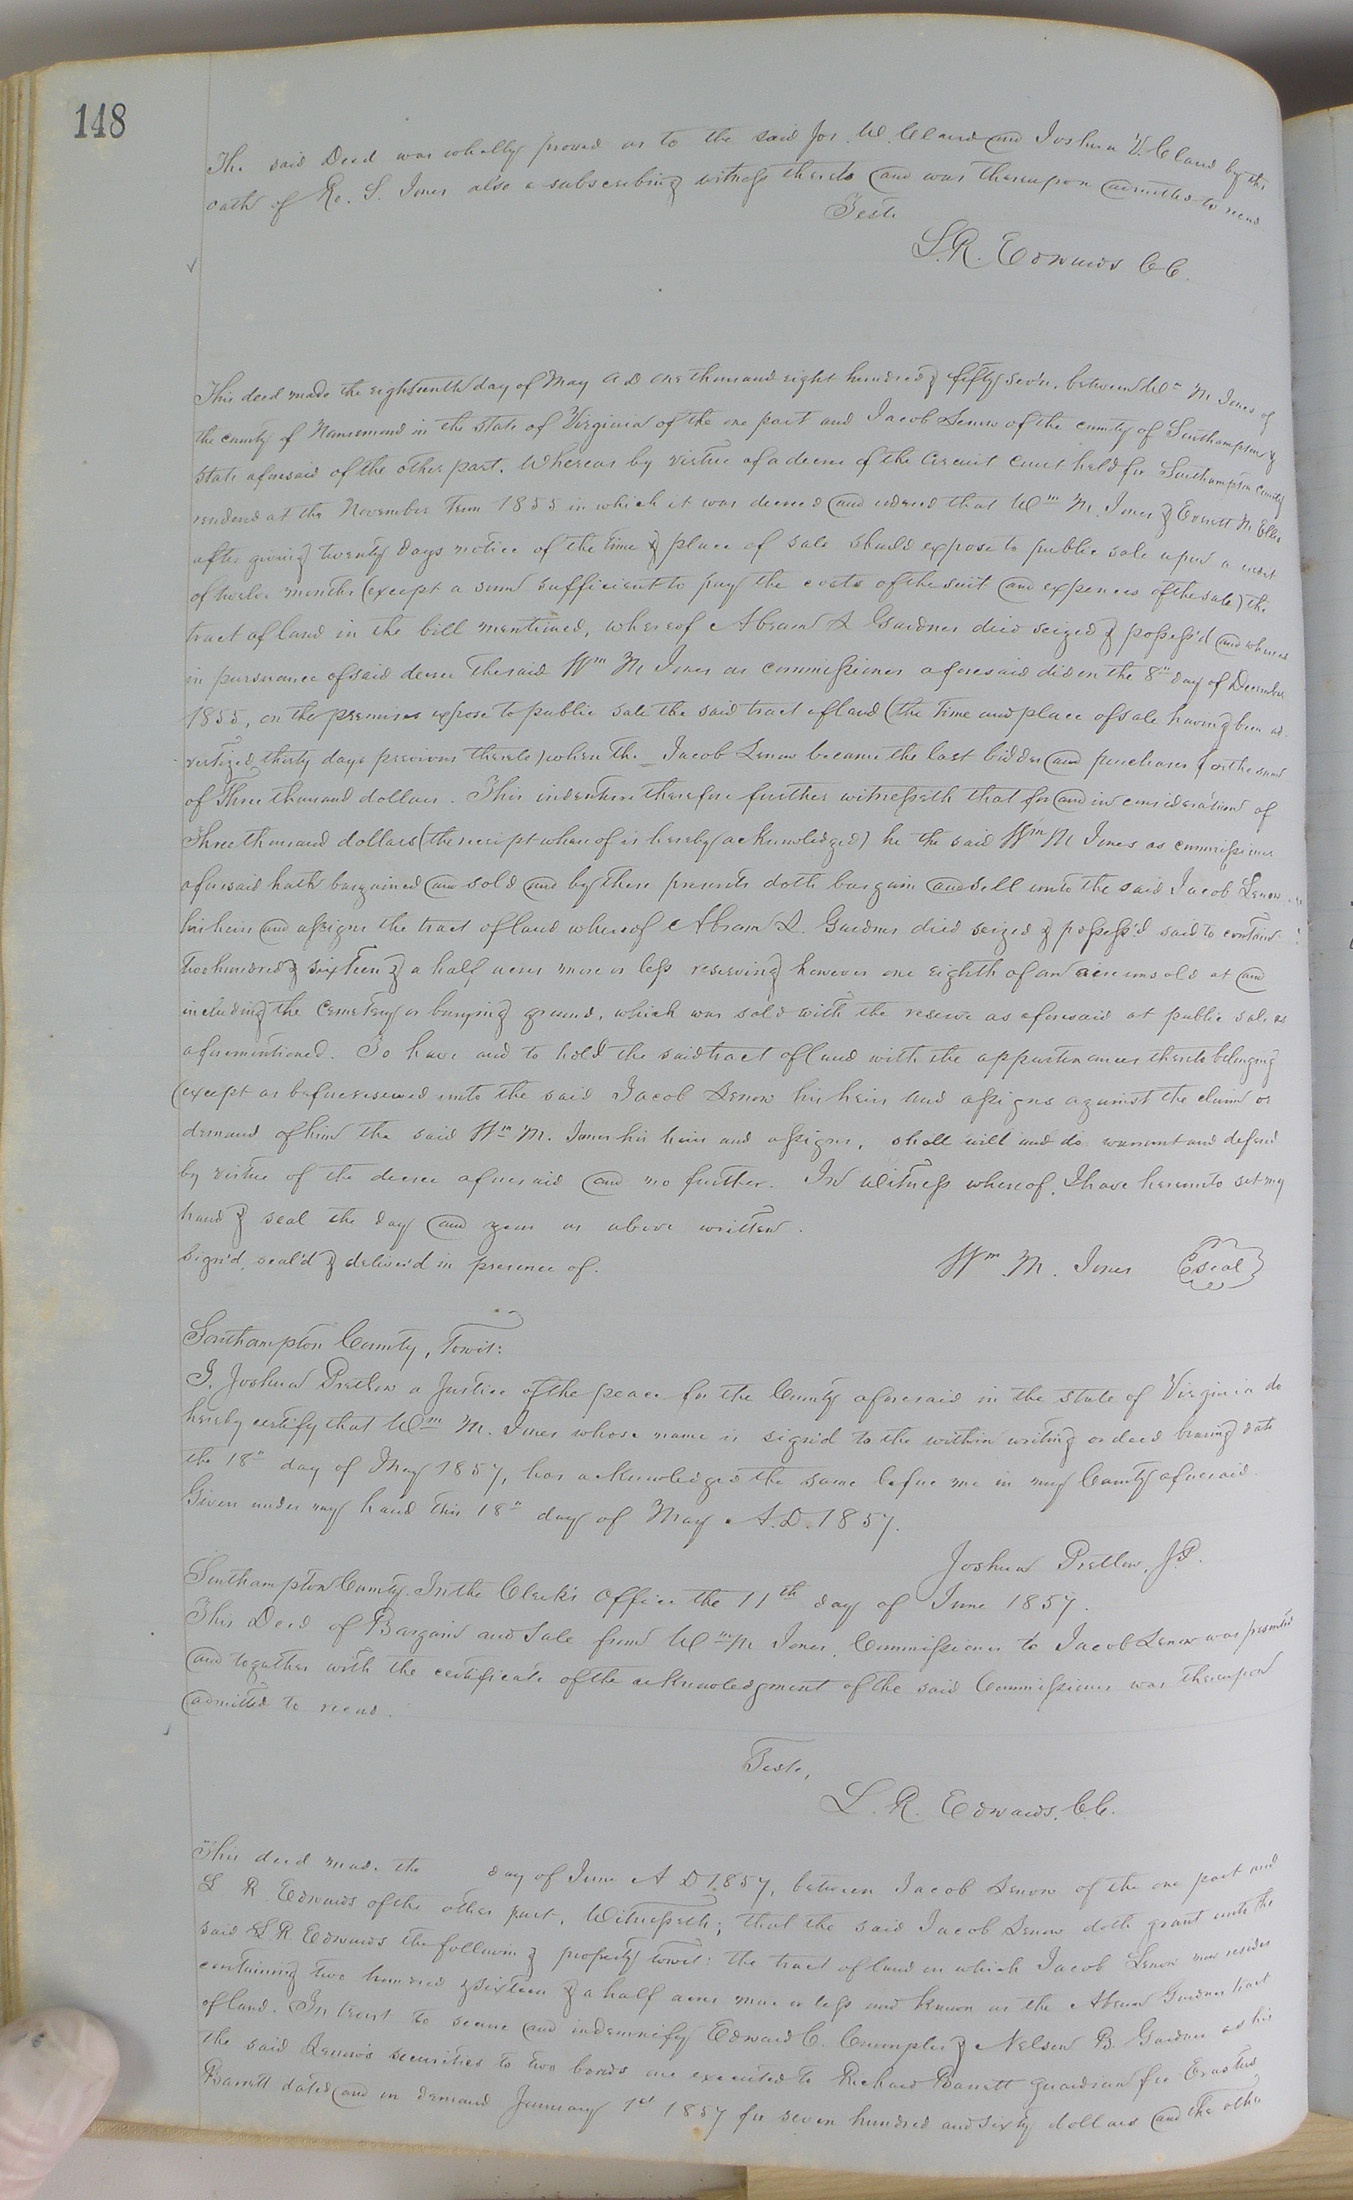 148
The said Deed was wholly proved as to the said Jos. W. Claud and Joshua V. Claud by the
oath of Ro. S. Jones also a subscribing witness thereto and was thereupon admitted to record
Teste
L.R. Edwards CC.
This deed made the eighteenth day of May A D one thousand eight hundred & fifty sev'n, between Wm M Jones of
the county of Nansemond in the State of Virginia of the one part and Jacob Lenow of the county of Southampton &
State aforesaid of the other part. Whereas by virtue of a decree of the Circuit Court held for Southampton county
rendered at the November Term 1855 in which it was decreed and ordered that Wm M. Jones & Everett M. Ellis
after giving twenty days notice of the time & place of sale should expose to public sale upon a credit
of twelve months (except a sum sufficient to pay the costs of the suit and expences of the sale) the
tract of land in the bill mentioned, whereof Abram L Gardner died seized & possess'd and whereas
in pursuance of said decree the said Wm M Jones as commissioner aforesaid did on the 8th day of December
1855, on the premises expose to public sale the said tract of land (the time and place of sale having been ad-
-vertized thirty days previous thereto) when the Jacob Lenow became the last bidder and purchaser for the sum
of Three thousand dollars. This indenture therefore further witnesseth that for and in consideration of
Three thousand dollars (the receipt whereof is hereby acknowledged) he the said Wm M Jones as commissioner
aforesaid hath bargained and sold and by these presents doth bargain and sell unto the said Jacob Lenow
his heirs and assigns the tract of land whereof Abram L. Gardner died seized & possess'd said to contain
two hundred & sixteen & a half acres more or less reserving however one eighth of an acre unsold at and
including the Cemetery or burying ground, which was sold with the reserve as aforesaid at public sale as
aforementioned. To have and to hold the said tract of land with the appurtenances thereto belonging
(except as before reserved unto the said Jacob Lenow his heirs and assigns against the claim or
demand of him the said Wm M. Jones his heirs and assigns, shall will and do warrant and defend
by virtue of the decree aforesaid and no further. In witness whereof, I have hereunto set my
hand & seal the day and year as above written.
Sign'd, seal'd & deliver'd in presence of.
Wm M. Jones Seal
Southampton County, Towit:
I, Joshua Pretlow a Justice of the peace for the County aforesaid in the State of Virginia do
hereby certify that Wm M. Jones whose name is sign'd to the within writing or deed bearing date
the 18th day of May 1857, has acknowledged the same before me in my County aforesaid
Given under my hand this 18th day of May A.D. 1857.
Joshua Pretlow, J.P.
Southampton County. In the Clerk's Office the 11th day of June 1857.
This Deed of Bargain and Sale from Wm M Jones, Commissioner to Jacob Lenow was presented
and together with the certificate of the acknowledgment of the said Commissioner was thereupon
admitted to record.
Teste,
L. R. Edwards, C.C.
This deed made the day of June A D 1857, between Jacob Lenow of the one part and
L R Edwards of the other part, Witnesseth; that the said Jacob Lenow doth grant unto the
said L R Edwards the following property towit: the tract of land on which Jacob Lenow now resides
containing two hundred & sixteen & a half acres more or less and known as the Abram Gardner tract
of land. In trust to secure and indemnify Edward C. Crumpler & Nelson B. Gardner as his
the said Lenow's securities to two bonds one executed to Richard Barrett guardian for Erastus
Barrett dated and on demand January 1st 1857 for seven hundred and sixty dollars and the other